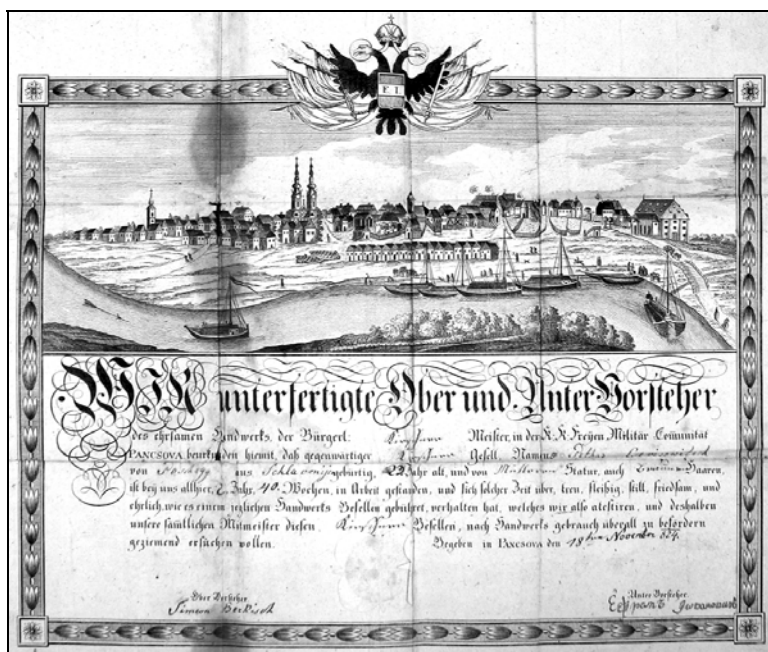 F. I.
WIR unterfertigte Ober und Unter Vorsteher
des ehrsamen Handwerks, der Bürgerl: Meister, in der K. K. Freyen Militär Comunität
PANCSOVA beurkunden hiemit, daß gegenwärtiger Gesell, Namens
von aus gebürtig, 22 Jahr alt, und von Statur, auch Haaren,
ist bey uns allhier, Jahr, 40. Wochen, in Arbeit gestanden, und sich solcher Zeit über, treu, fleißig, still, friedsam, und
ehrlich, wie es einem jeglichen Handwerks Gesellen gebühret, verhalten hat, welches wir also atestiren, und deshalben
unsere samtlichen Mitmeister diesen, Gesellen, nach Handwerks gebrauch überall zu befördern
geziemend ersuchen wollen. Gegeben in PANCSOVA den 18ten November 834.
Ober Vorsteher Unter Vorsteher
Simeon